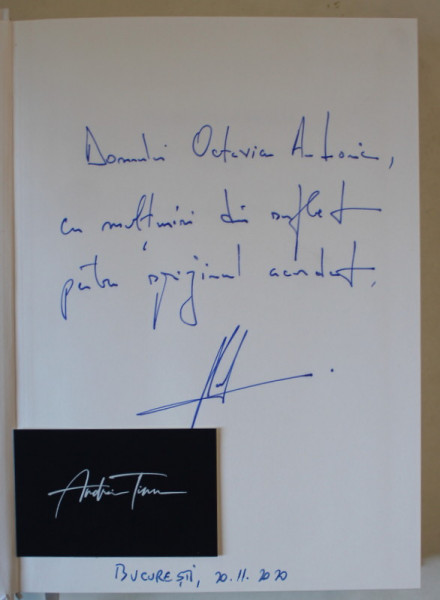 Domnului Octavian Antonie,
cu mulțumiri din suflet
pentru sprijinul acordat.
Andrei Tinu
BUCUREȘTI, 20.11.2020